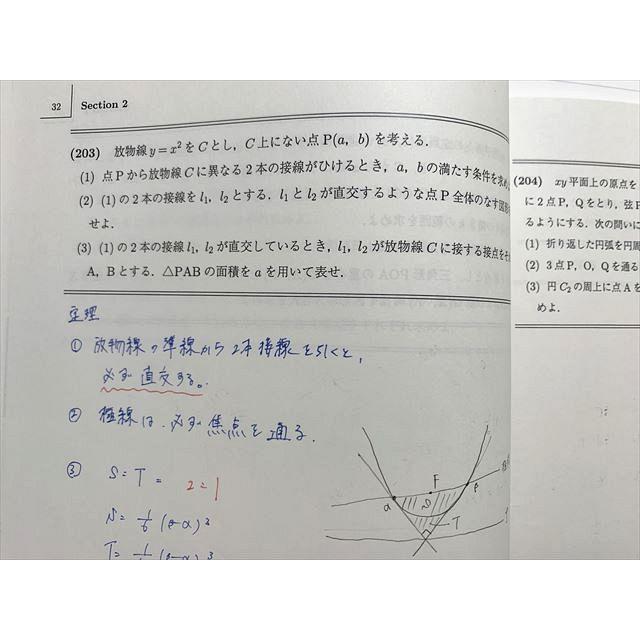 32
Section 2
(203) 放物線 y=x² をCとし，C上にない点P(a, b) を考える．
(1) 点Pから放物線Cに異なる2本の接線がひけるとき，a，bの満たす条件を求め
(2) (1)の2本の接線を l₁，l₂とする．l₁とl₂が直交するような点P全体のなす図形
せよ．
(3) (1)の2本の接線 l₁，l₂が直交しているとき，l₁，l₂が放物線Cに接する接点をそ
A，Bとする．△PABの面積をaを用いて表せ．
定理
① 放物線の準線から2本接線を引くと，
必ず直交する。
② 極線は、必ず焦点を通る．
③ S：T = 2：1
S= 1/6 (β-α)³
F
α
S
β
T
(204) xy平面上の原点を
に2点P，Qをとり，弦P
るようにする．次の問いに
(1) 折り返した円弧を円周
(2) 3点P，O，Qを通る
(3) 円C₂の周上に点Aを
めよ．